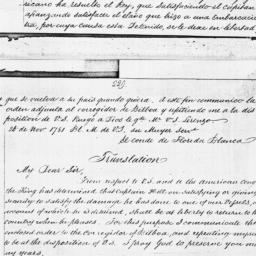 ricano ha resuelto el Rey, que satisfaciendo el capitan
afianzando satisfacer el daño que hizo a una Embarcacion
tra, por cuya causa esta Detenido, se le dexe en libertad
y que se vuelva a su pais quando quiera. A este fin comunico la
orden adjunta al corregidor de Bilbao y repitiendo me a la dis
posicion de V.S. Ruego a Dios le g^de m^s a^s Sn Lorenzo
de Nov^re 1781 Bl. M. de V.S. su Mayor Serv^r
el conde de Florida blanca
Translation
My Dear Sir,
From respect to V.S. and to the american Cong
the King has determined, that Captain Hill, on satisfying or giving
security to satisfy the damage he has done to one of our Vessels, on
account of which he is detained, shall be at liberty to return to his
country when he pleases. For this purpose I communicate the
enclosed order to the Corregidor of Bilboa, and repeating myself
to be at the disposition of V.S. I pray God to preserve you many
years.